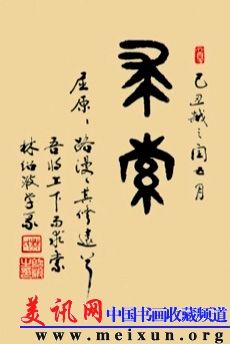 己丑歲之闰五月
求索
屈原：路漫漫其修遠兮
吾將上下而求索
林 学篆
美讯网 中国书画收藏频道
www.meixun.org